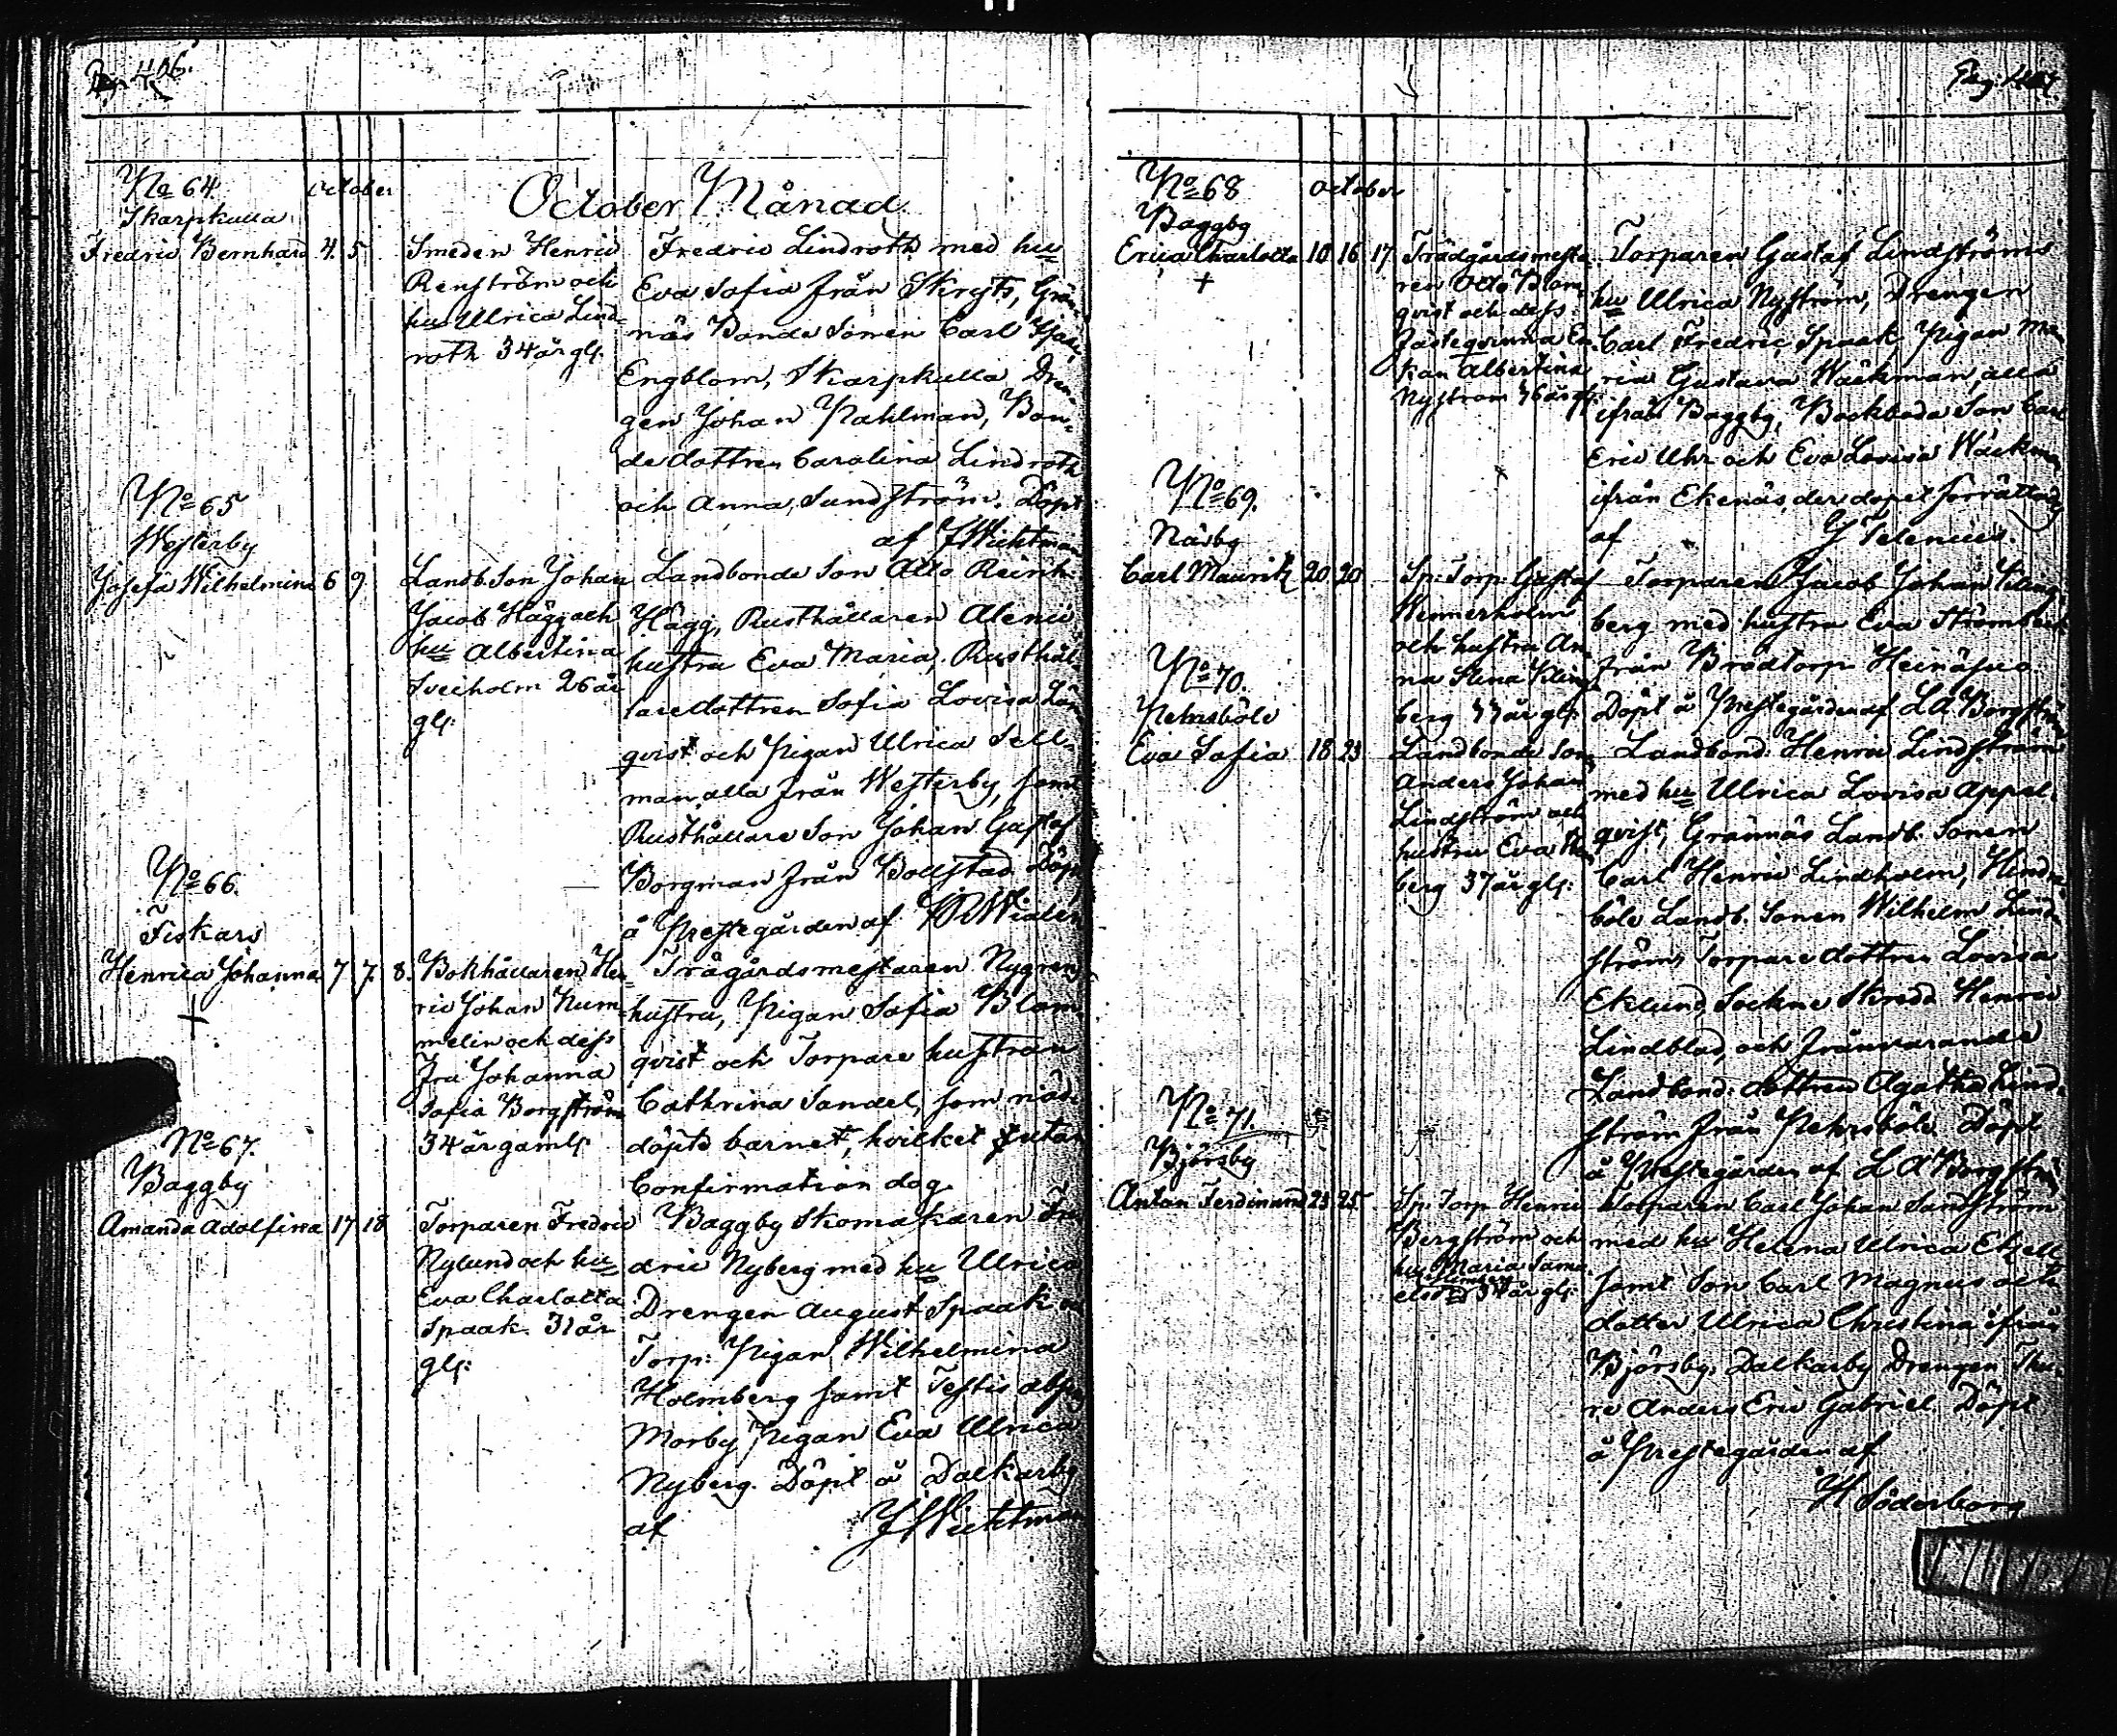 Pag. 406.
No 64 October
October Månad
Skarpkulla
Fredric Bernhard 4. 5
Smeden Henric
Renström och
hu Ulrica Lind-
roth 34 år gl.
Fredric Lindroth med hu
Eva Sofia från Skryts, Grän-
näs Bonde Sonen Carl
Engblom, Skarpkulla Dren-
gen Johan Pahlman, Bon-
de dottren Carolina Lindroth
och Anna Sundström. Döpt
af J Wichtman
No 65
Westerby
Josefa Wilhelmina 6 9
Landb. Son Johan
Jacob Hägg och
hu Albertina
Sveiholm 26 år
gl:
Landbonde Son Otto Reinh
Hägg, Rusthållaren Alenii
hustru Eva Maria, Rusthål-
lare dottren Sofia Lovisa Lön-
qvist och Pigan Ulrica Sell-
man, alla från Westerby, samt
Rusthållare Son Johan Gustaf
Borgman från Bollstad Döpt
å Prestegården af
No 66.
Fiskars
Henrica Johanna 7 7. 8.
+
Bokhållaren Hen-
ric Johan Num-
melin och dess
Fru Johanna
Sofia Borgström
34 år gaml
Trägårdsmestaren Nygrens
hustru, Pigan Sofia Blom-
qvist och Torpare hustrun
Cathrina Sandel, som nöd-
döpte barnet, hvilket utan
Confirmation dog.
No 67.
Baggby
Amanda Adolfina 17 18
Torparen Fredric
Nylund och hu
Eva Charlotta
Spaak. 31 år
gl:
Baggby Skomakaren Fre
dric Nyberg med hu Ulrica
Drengen August Spaak och
Torp: Pigan Wilhelmina
Holmberg samt Testis abs
Morby Pigan Eva Ulrica
Nyberg. Döpt å Dalkarby
af J Wichtman
Pag. 407.
No 68 October
Baggby
Erica Charlotta 10 16 17
+
Trädgårdsmesta-
ren Otto Blom-
qvist och dess
Fästeqvinna En-
kan Albertina
Nyström 36 år gl:
Torparen Gustaf Lindströms
hu Ulrica Nyström, Drengen
Carl Fredric Spaak, Pigan Ma-
ria Gustava Wäckman, alla
ifrån Baggby, Backboda Son Carl
Eric Uhr och Eva Lovisa Wäckman
ifrån Ekenäs, der dopet förrättades
af J Telenius.
No 69.
Näsby
Carl Maurik 20 20
Sp: Torp: Gustaf
Wennerholm
och hustru An-
na Stina Kling-
berg 37 år gl:
Torparen Jacob Johan Kling-
berg med hustru Eva Strömberg
från Brödtorp Heinäsuo
Döpt å Prestegården af L A Borgström
No 70.
Pehrsböle
Eva Sofia 18 23
Landbonde Son
Anders Johan
Lindström och
hustru Eva
berg 37 år gl:
Landbond: Henric Lindström
med hu Ulrica Lovisa Appel-
qvist, Grännäs Landb. Sonen
Carl Henric Lindholm, Hindra-
böle Landb. Sonen Wilhelm Lind-
ström, Torpare dottren Lovisa
Eklund, Sockne Skredd Henric
Lindblad, och frånvarande
Landbond: dottren Agatha Lind-
ström från Pehrsböle Döpt
å Prestegården af L A Borgström
No 71.
Björsby
Anton Ferdinand 23 25
Sp: Torp Henric
Bergström och
hu Maria Samu-
elsdr 34 år gl:
Torparen Carl Johan Sandström
med hu Helena Ulrica Ekzell
samt Son Carl Magnus och
dotter Ulrica Christina ifrån
Björsby, Dalkarby Drengen Thu-
re Anders Eric Gabriel. Döpt
å Prestegården af
H Söderborg